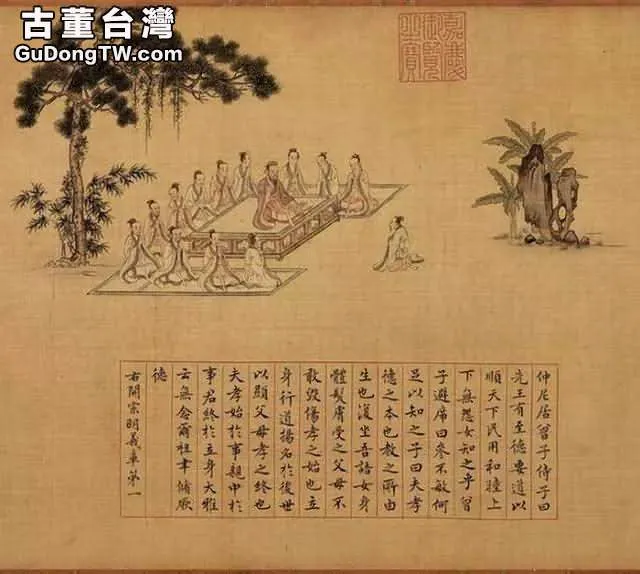 古董台灣
GuDongTW.com
嘉慶
御覽
之寶
仲尼居曾子侍子曰
先王有至德要道以
順天下民用和睦上
下無怨女知之乎曾
子避席曰參不敏何
足以知之子曰夫孝
德之本也教之所由
生也復坐吾語女身
體髮膚受之父母不
敢毀傷孝之始也立
身行道揚名於後世
以顯父母孝之終也
夫孝始於事親中於
事君終於立身大雅
云無念爾祖聿脩厥
德
右開宗明義章第一